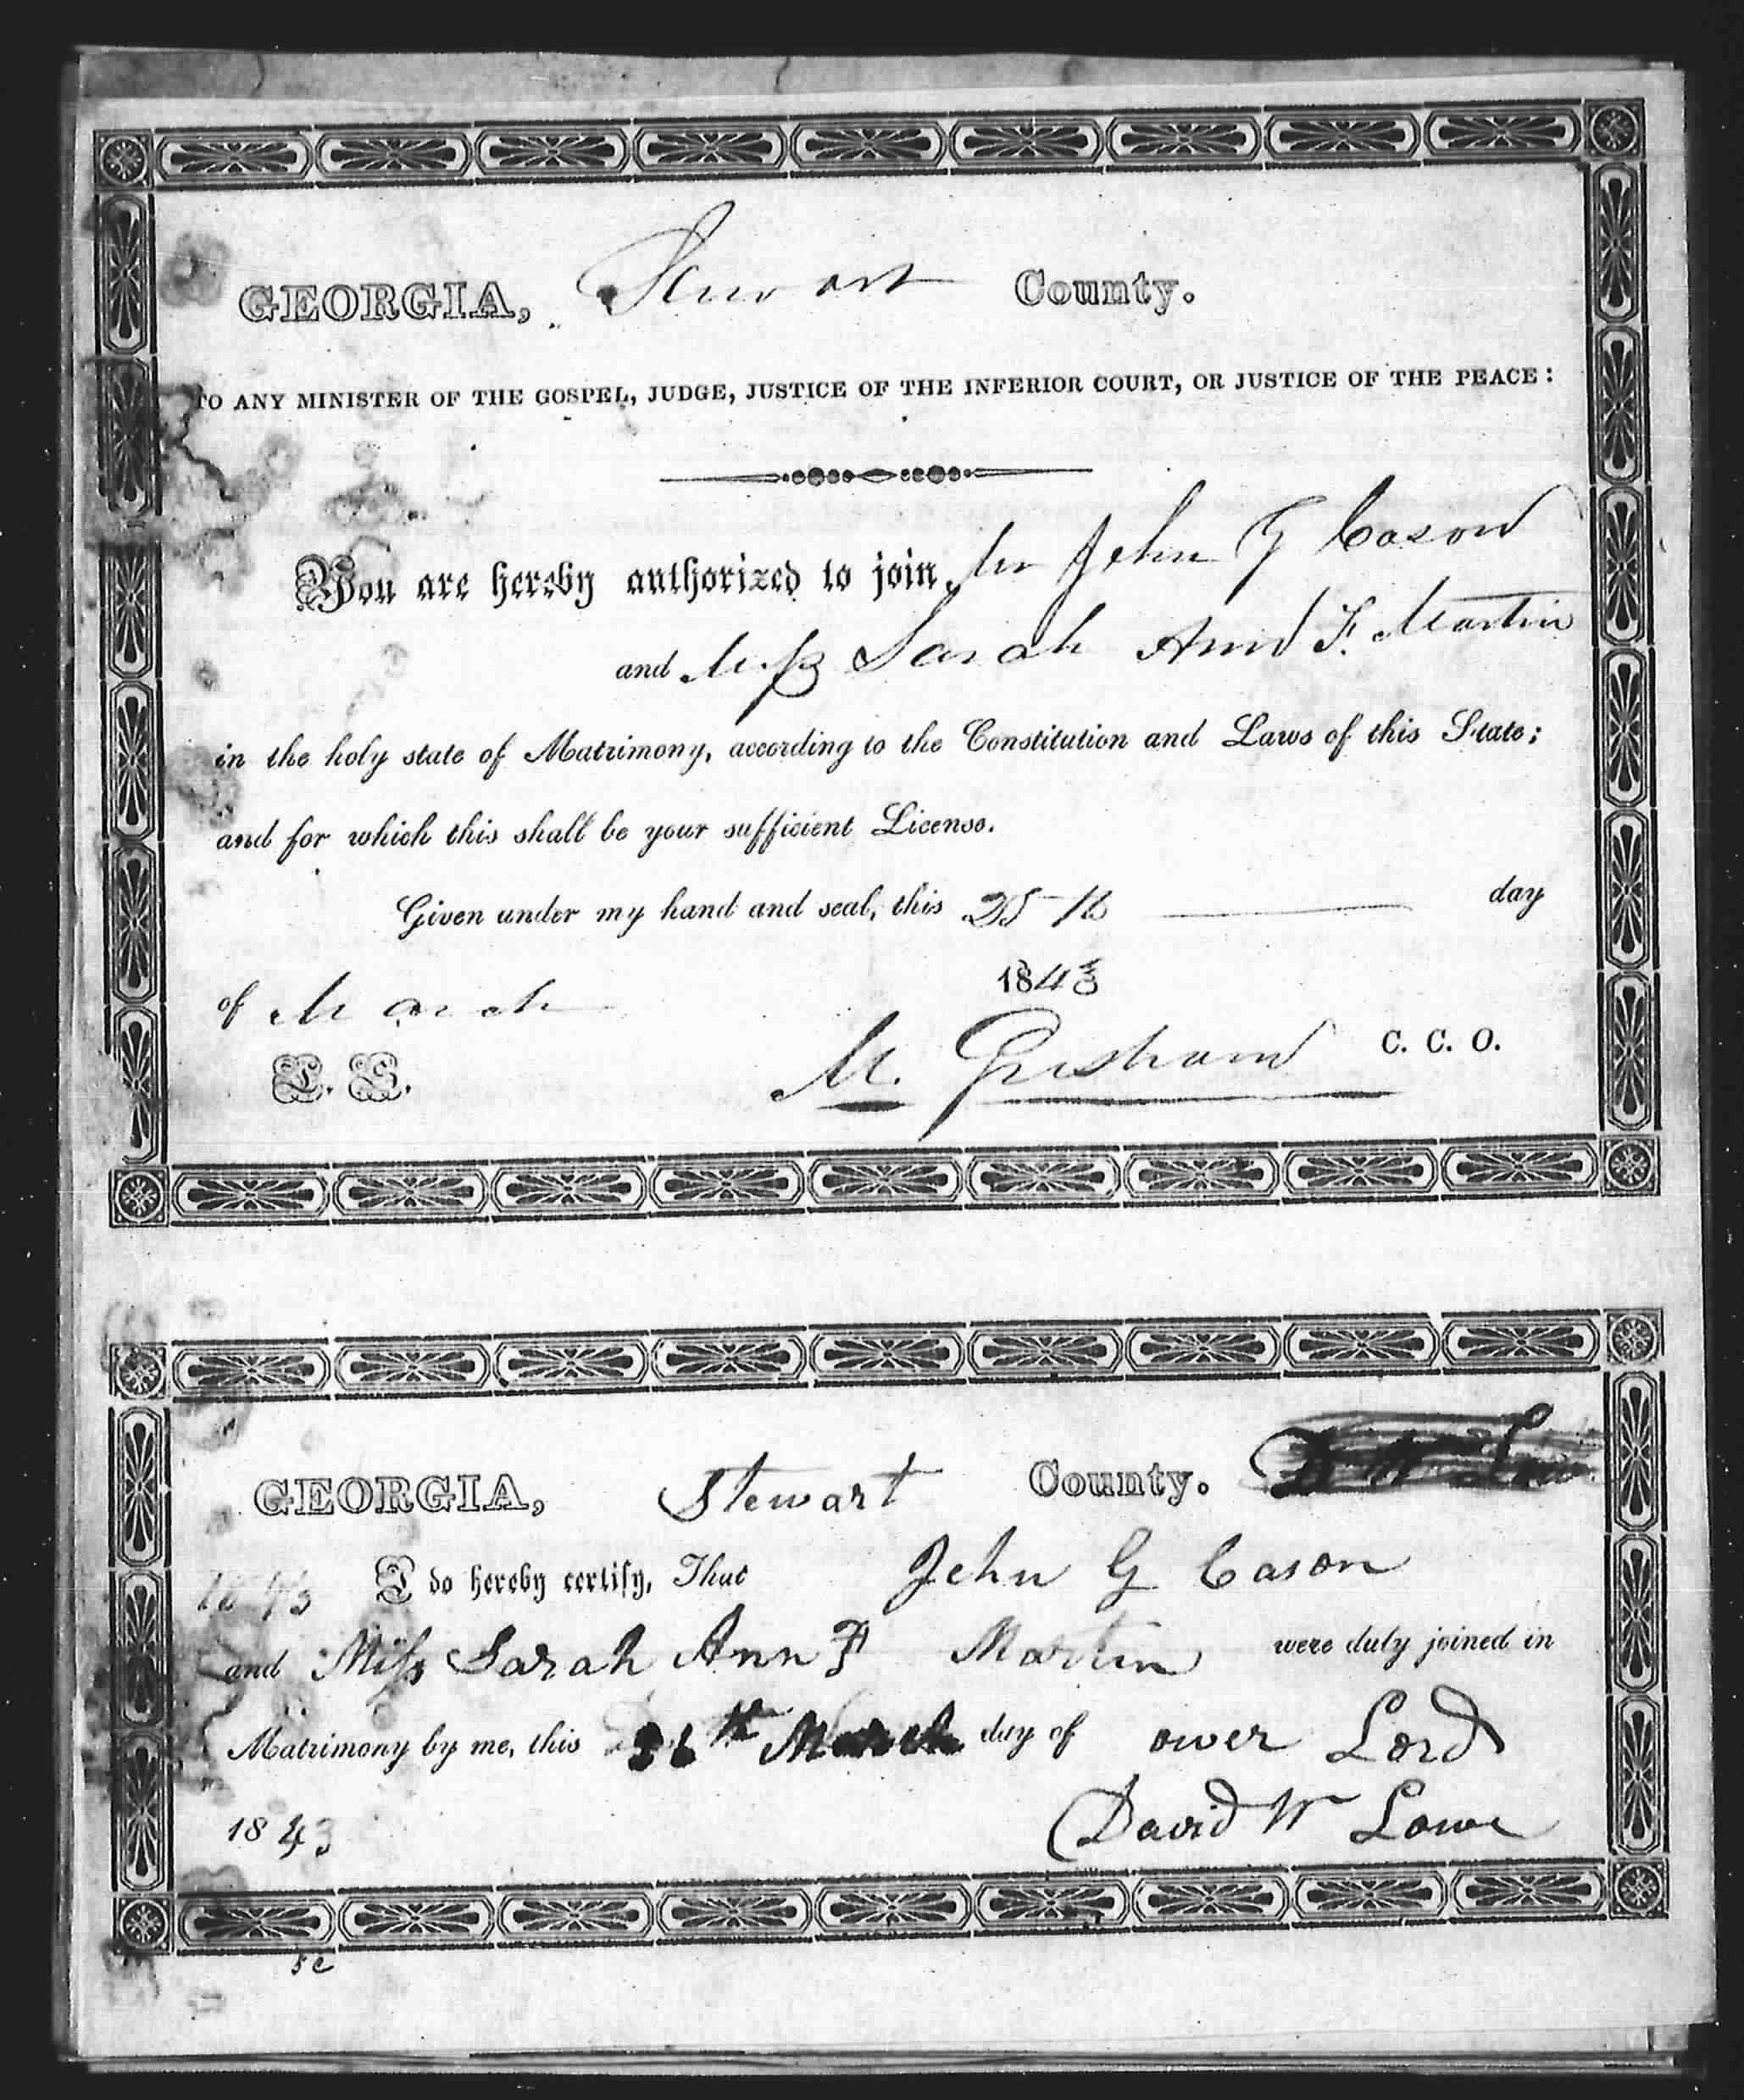 GEORGIA, Stewart County.
TO ANY MINISTER OF THE GOSPEL, JUDGE, JUSTICE OF THE INFERIOR COURT, OR JUSTICE OF THE PEACE:
You are hereby authorized to join Mr John G Cason
and Miss Sarah Ann F. Martin
in the holy state of Matrimony, according to the Constitution and Laws of this State;
and for which this shall be your sufficient License.
Given under my hand and seal, this 25th day
of March 1843
L. S. M. Gresham C. C. O.
GEORGIA, Stewart County.
1843 I do hereby certify, That John G Cason
and Miss Sarah Ann F Martin were duly joined in
Matrimony by me, this th March day of ower Lord
1843 David W Lowe